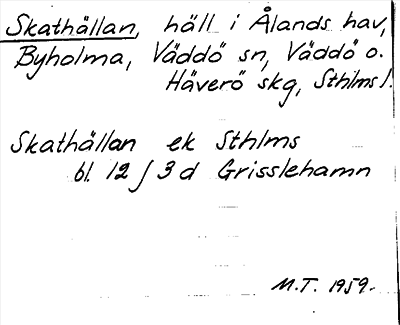 Skathällan, häll i Ålands hav,
Byholma, Väddö sn, Väddö o.
Häverö skg, Sthlms l.
Skathällan ek Sthlms
bl. 12 J 3 d Grisslehamn
M.T. 1959.